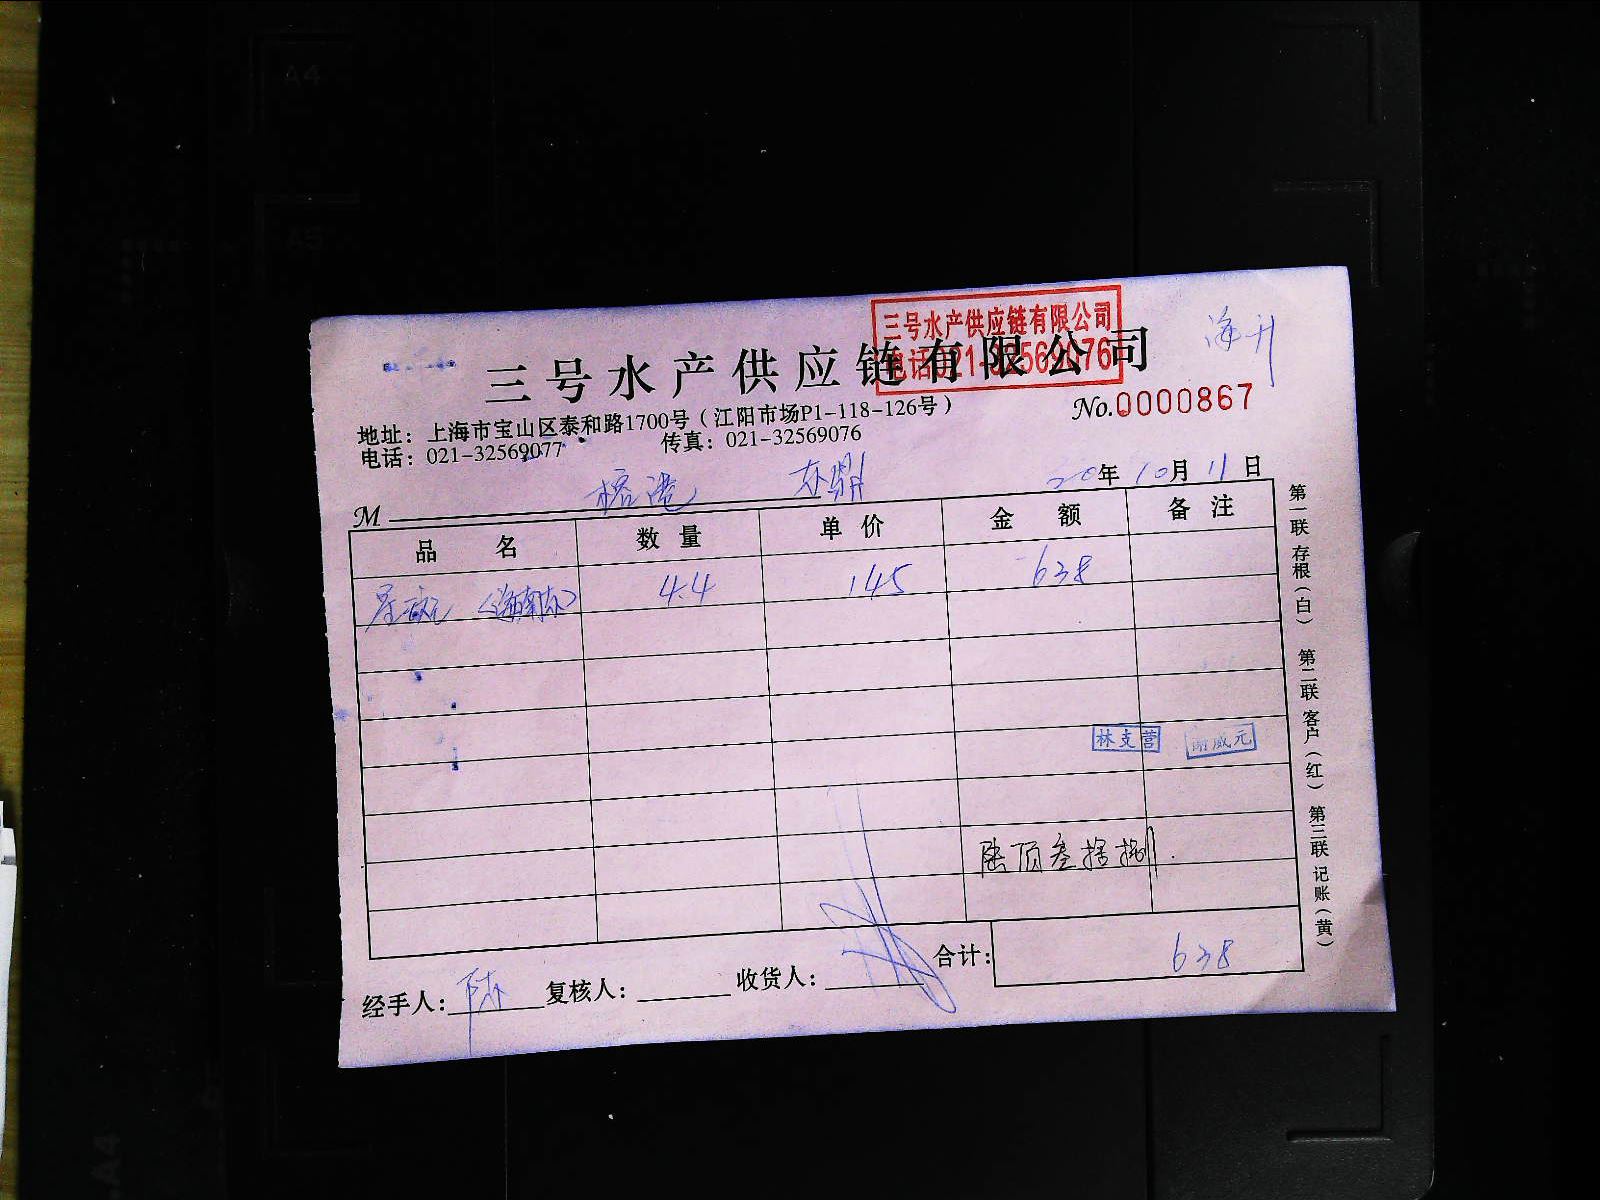 三号水产供应链有限公司
电话021-32569076
三号水产供应链有限公司
No.0000867
地址：上海市宝山区泰和路1700号（江阳市场P1-118-126号）
电话：021-32569077 传真：021-32569076
M 20年10月11日
品名 数量 单价 金额 备注
(海南东) 4.4 145 638
林支营
威元
陆项叁捨捌
合计：638
经手人：陈 复核人： 收货人：
第一联 存根（白） 第二联 客户（红） 第三联 记账（黄）
A4
A5
A4